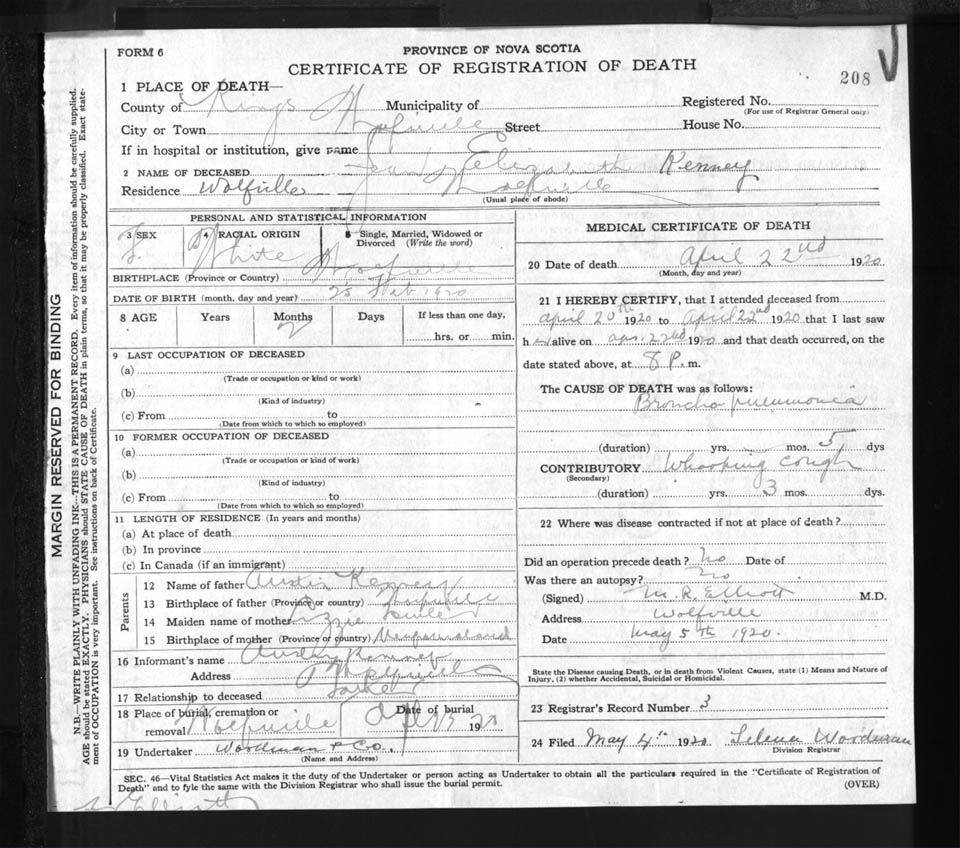 FORM 6
PROVINCE OF NOVA SCOTIA
CERTIFICATE OF REGISTRATION OF DEATH
208
1 PLACE OF DEATH—
County of Kings Municipality of Registered No.
(For use of Registrar General only)
City or Town Wolfville Street House No.
If in hospital or institution, give name
2 NAME OF DECEASED Jean Elizabeth Kenney
Residence Wolfville Wolfville
(Usual place of abode)
PERSONAL AND STATISTICAL INFORMATION
3 SEX 4 RACIAL ORIGIN 5 Single, Married, Widowed or Divorced (Write the word)
F. White
BIRTHPLACE (Province or Country) Wolfville
DATE OF BIRTH (month, day and year) 25 Feb 1920
8 AGE Years Months Days If less than one day,
2 hrs. or min.
9 LAST OCCUPATION OF DECEASED
(a)
(Trade or occupation or kind or work)
(b)
(Kind of industry)
(c) From to
(Date from which to which so employed)
10 FORMER OCCUPATION OF DECEASED
(a)
(Trade or occupation or kind of work)
(b)
(Kind of industry)
(c) From to
(Date from which to which so employed)
11 LENGTH OF RESIDENCE (In years and months)
(a) At place of death
(b) In province
(c) In Canada (if an immigrant)
Parents
12 Name of father Austin Kenney
13 Birthplace of father (Province or country) Wolfville
14 Maiden name of mother Lizzie
15 Birthplace of mother (Province or country)
16 Informant's name Austin Kenney
Address Wolfville
17 Relationship to deceased Father
18 Place of burial, cremation or removal Wolfville Date of burial Apr 1920
19 Undertaker Woodman & Co.
(Name and Address)
MEDICAL CERTIFICATE OF DEATH
20 Date of death April 22nd 1920
(Month, day and year)
21 I HEREBY CERTIFY, that I attended deceased from
April 20th 1920 to April 22nd 1920 that I last saw
h er alive on apr. 22nd 1920 and that death occurred, on the
date stated above, at 8 P. m.
The CAUSE OF DEATH was as follows:
Broncho pneumonia
(duration) yrs. mos. 5 dys
CONTRIBUTORY Whooping cough
(Secondary)
(duration) yrs. 3 mos. dys.
22 Where was disease contracted if not at place of death?
Did an operation precede death? no Date of
Was there an autopsy? no
(Signed) M. R. Elliott M.D.
Address Wolfville
Date May 5th 1920.
State the Disease causing Death, or in death from Violent Causes, state (1) Means and Nature of
Injury, (2) whether Accidental, Suicidal or Homicidal.
23 Registrar's Record Number 3
24 Filed May 4th 1920 Selena Woodman
Division Registrar
SEC. 46—Vital Statistics Act makes it the duty of the Undertaker or person acting as Undertaker to obtain all the particulars required in the "Certificate of Registration of
Death" and to fyle the same with the Division Registrar who shall issue the burial permit.
(OVER)
Elliott
MARGIN RESERVED FOR BINDING
N.B.—WRITE PLAINLY WITH UNFADING INK—THIS IS A PERMANENT RECORD. Every item of information should be carefully supplied.
AGE should be stated EXACTLY. PHYSICIANS should STATE CAUSE OF DEATH in plain terms, so that it may be properly classified. Exact state-
ment of OCCUPATION is very important. See instructions on back of Certificate.